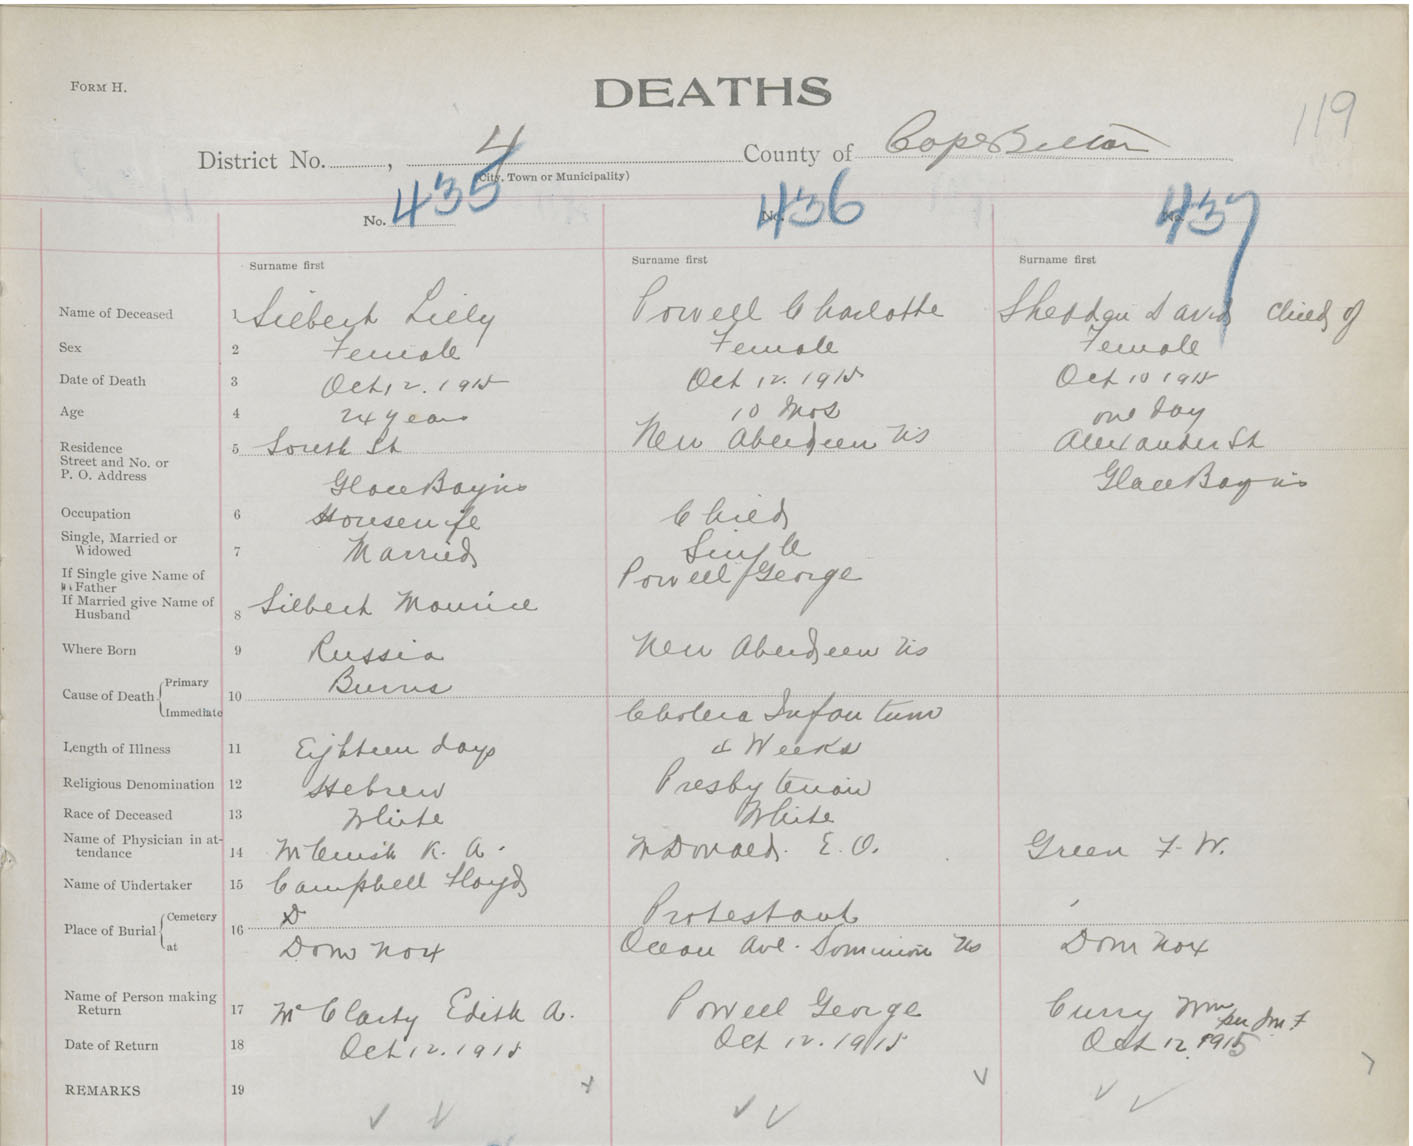 FORM H.
DEATHS
119
District No. , 4 County of Cape Breton
(City, Town or Municipality)
No. 435 No. 436 No. 437
Surname first Surname first Surname first
Name of Deceased 1 Siebert Lilly Powell Charlotte Sheddon David child of
Sex 2 Female Female Female
Date of Death 3 Oct 12. 1915 Oct 12. 1915 Oct 10 1915
Age 4 24 years 10 Mos one day
Residence 5 South St New Aberdeen NS Alexander St
Street and No. or
P. O. Address Glace Bay NS Glace Bay NS
Occupation 6 Housewife Child
Single, Married or
Widowed 7 Married Single
If Single give Name of
His Father Powell George
If Married give Name of
Husband 8 Siebert Maurice
Where Born 9 Russia New Aberdeen NS
Cause of Death Primary 10 Burns
Immediate Cholera Infantum
Length of Illness 11 Eighteen days 4 Weeks
Religious Denomination 12 Hebrew Presbyterian
Race of Deceased 13 White White
Name of Physician in at-
tendance 14 McCuish K. A. McDonald. E. O. Green F. W.
Name of Undertaker 15 Campbell Lloyd
Place of Burial Cemetery 16 D Protestant
at Dom No 4 Ocean Ave. Dominion NS Dom No 4
Name of Person making
Return 17 McClarty Edith A. Powell George Curry Wm
Date of Return 18 Oct 12. 1915 Oct 12. 1915 Oct 12. 1915
REMARKS 19